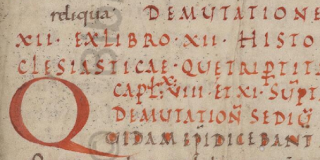 reliqua DE MUTATIONE
XII · EX LIBRO · XII · HISTO
CLESIASTICAE · QUE TRIPERTIT
CAPT · VIII · ET XI · SUPT
DE MUTATION SED IU
QUIDAM EPI DICEBANT